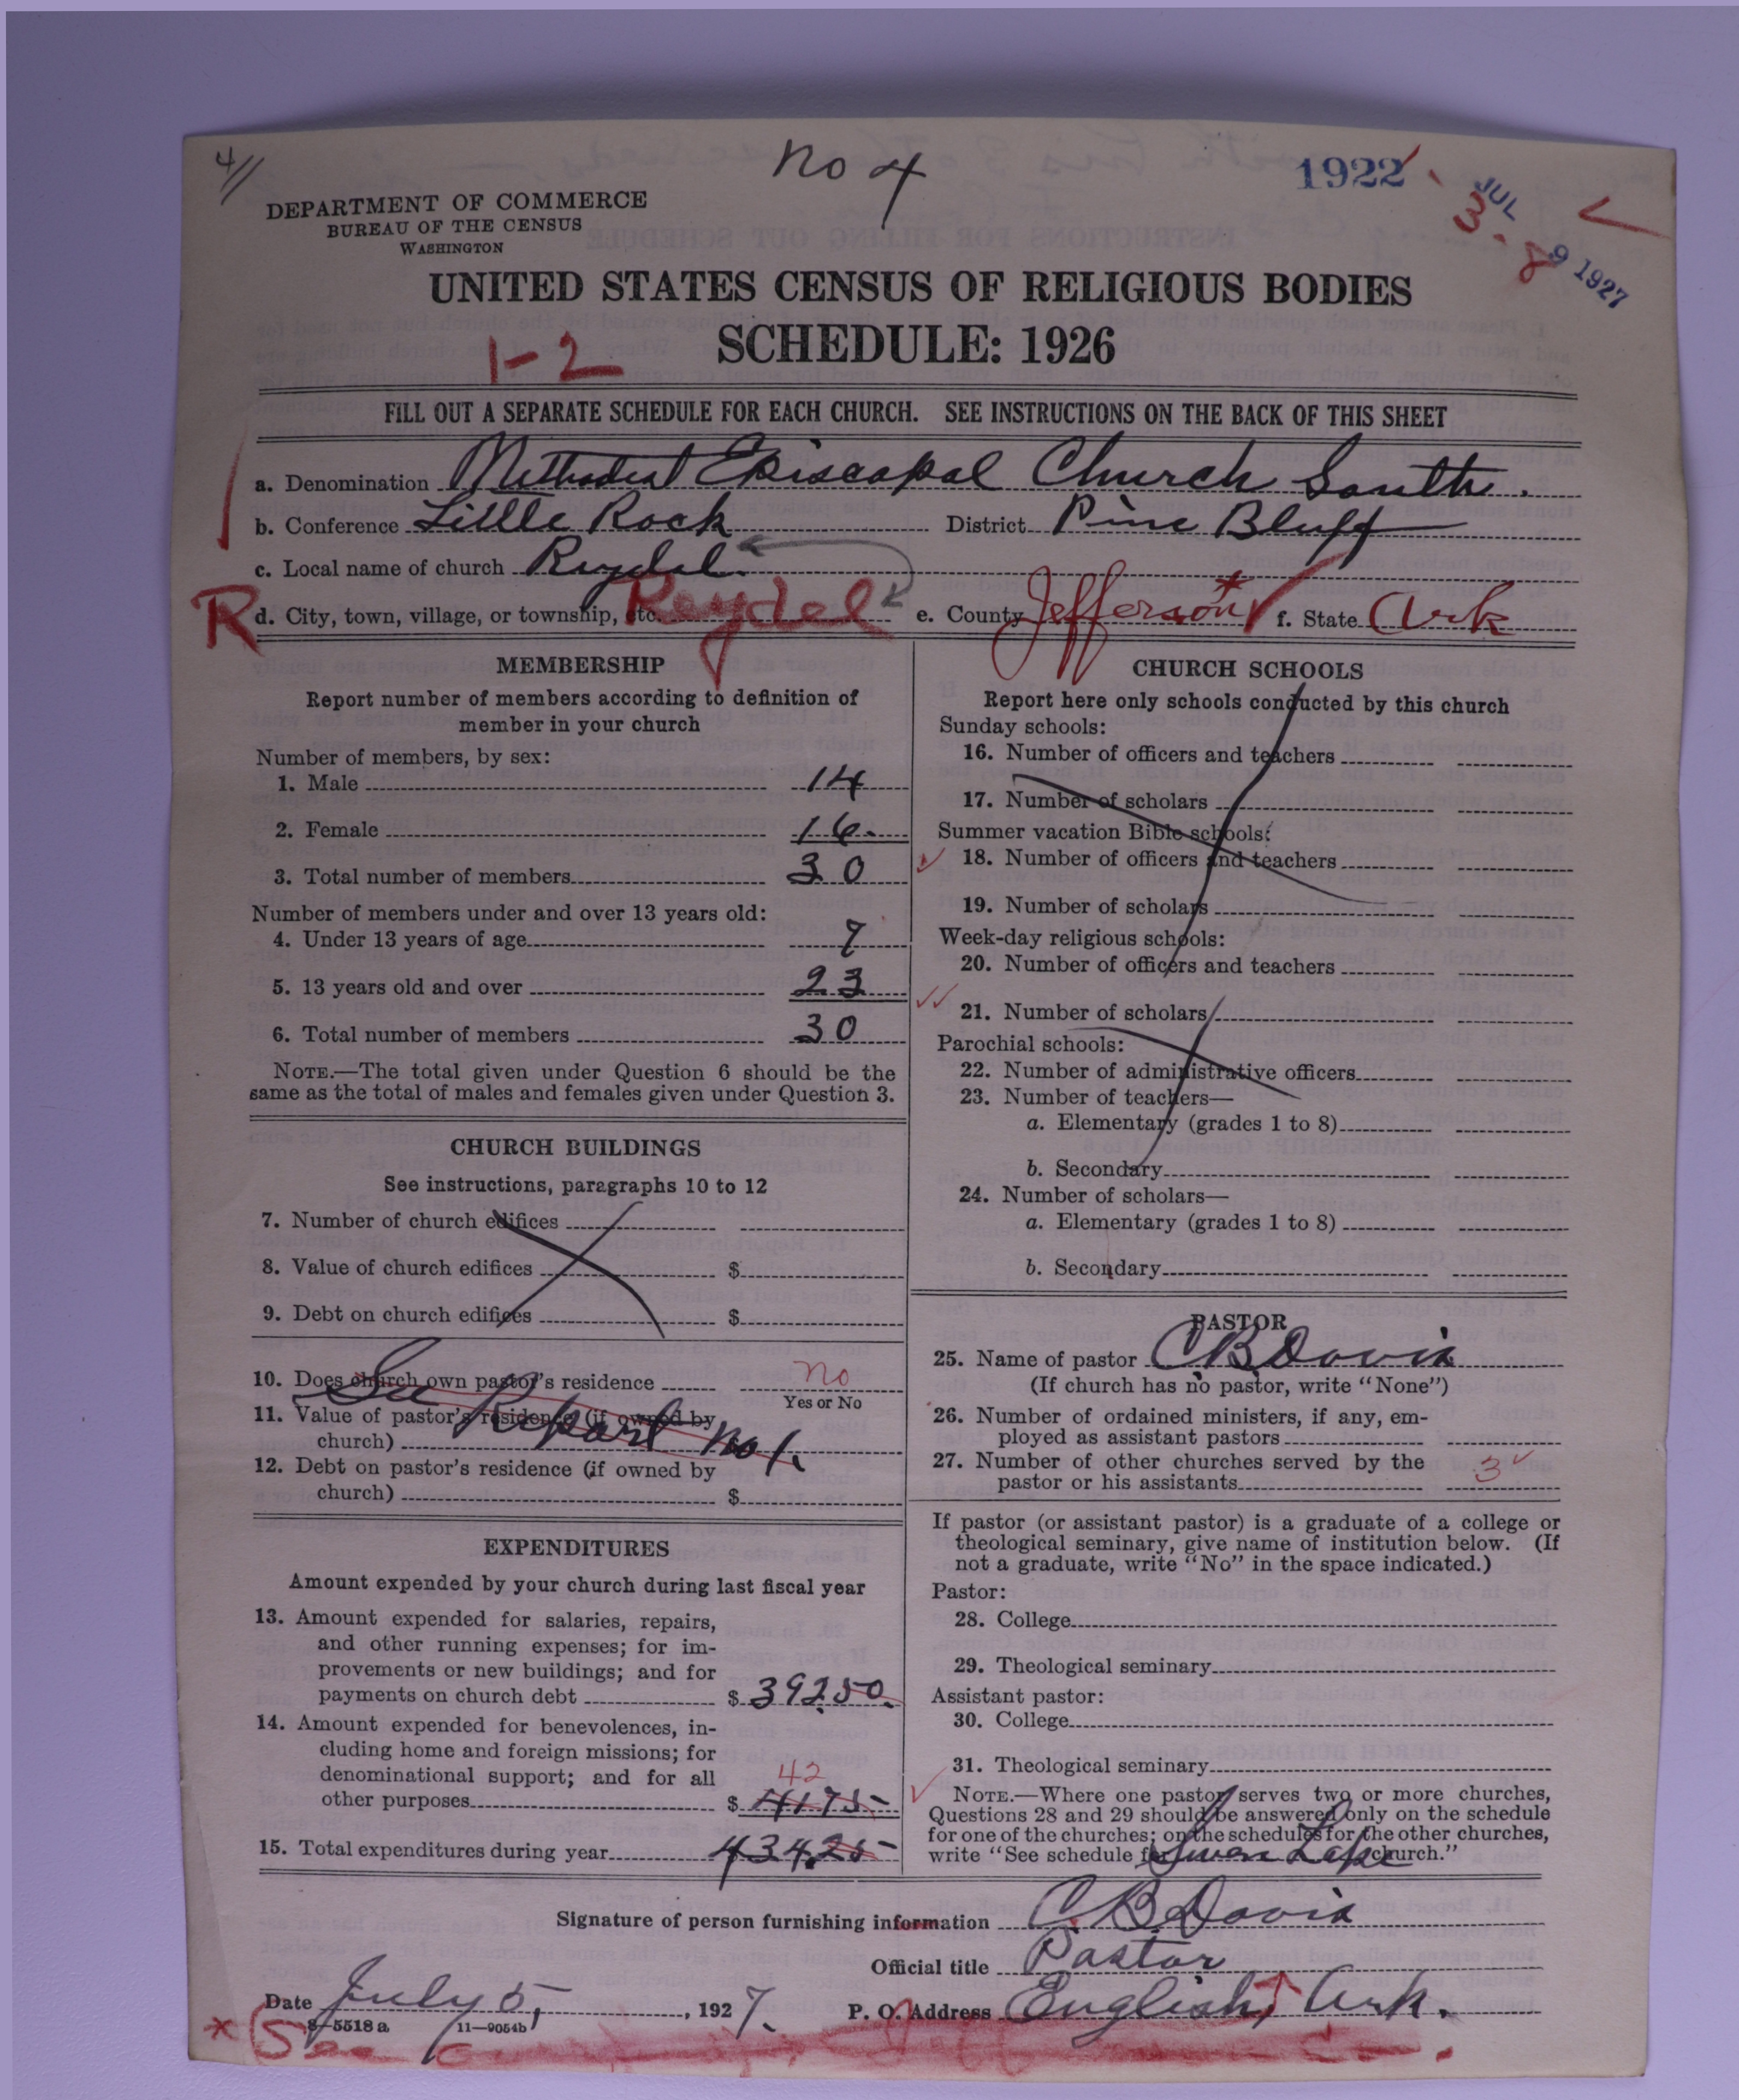 4//
no 4
1922
JUL 9 1927
3-8
DEPARTMENT OF COMMERCE
BUREAU OF THE CENSUS
WASHINGTON
UNITED STATES CENSUS OF RELIGIOUS BODIES
SCHEDULE: 1926
1-2
FILL OUT A SEPARATE SCHEDULE FOR EACH CHURCH. SEE INSTRUCTIONS ON THE BACK OF THIS SHEET
a. Denomination Methodist Episcopal Church South.
b. Conference Little Rock District Pine Bluff
c. Local name of church Reydel.
R d. City, town, village, or township, etc. Reydel e. County Jefferson* f. State Ark
MEMBERSHIP
Report number of members according to definition of
member in your church
Number of members, by sex:
1. Male 14
2. Female 16.
3. Total number of members 30
Number of members under and over 13 years old:
4. Under 13 years of age 7
5. 13 years old and over 23
6. Total number of members 30
NOTE.—The total given under Question 6 should be the
same as the total of males and females given under Question 3.
CHURCH BUILDINGS
See instructions, paragraphs 10 to 12
7. Number of church edifices
8. Value of church edifices $
9. Debt on church edifices $
10. Does church own pastor's residence no
Yes or No
See Report no 1.
11. Value of pastor's residence (if owned by
church)
12. Debt on pastor's residence (if owned by
church) $
EXPENDITURES
Amount expended by your church during last fiscal year
13. Amount expended for salaries, repairs,
and other running expenses; for im-
provements or new buildings; and for
payments on church debt $ 392.50.
14. Amount expended for benevolences, in-
cluding home and foreign missions; for
denominational support; and for all
42
other purposes $ 41.75
15. Total expenditures during year 434.25
CHURCH SCHOOLS
Report here only schools conducted by this church
Sunday schools:
16. Number of officers and teachers
17. Number of scholars
Summer vacation Bible schools:
18. Number of officers and teachers
19. Number of scholars
Week-day religious schools:
20. Number of officers and teachers
21. Number of scholars
Parochial schools:
22. Number of administrative officers
23. Number of teachers—
a. Elementary (grades 1 to 8)
b. Secondary
24. Number of scholars—
a. Elementary (grades 1 to 8)
b. Secondary
PASTOR
25. Name of pastor C B Davis
(If church has no pastor, write "None")
26. Number of ordained ministers, if any, em-
ployed as assistant pastors
27. Number of other churches served by the
pastor or his assistants 3
If pastor (or assistant pastor) is a graduate of a college or
theological seminary, give name of institution below. (If
not a graduate, write "No" in the space indicated.)
Pastor:
28. College
29. Theological seminary
Assistant pastor:
30. College
31. Theological seminary
NOTE.—Where one pastor serves two or more churches,
Questions 28 and 29 should be answered only on the schedule
for one of the churches; on the schedules for the other churches,
write "See schedule for Swan Lake church."
Signature of person furnishing information C. B. Davis
Official title Pastor
Date July 5, 1927. P. O. Address English, Ark.
8—5518 a 11—9054b
* See